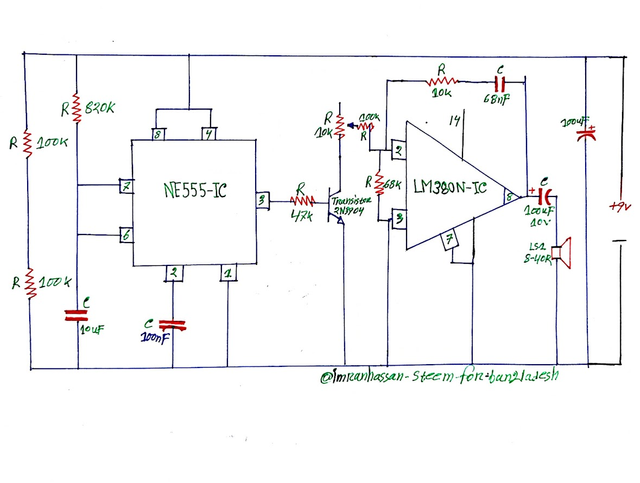 R
820K
R
100K
R
100K
C
10uF
8
4
NE555-IC
7
6
3
2
1
C
100nF
R
47K
R
10K
100k
R
Transistor
2N3904
R
68K
R
10K
C
68nF
14
2
3
LM380N-IC
8
7
C
100uF
10V
LS1
100uF
+
+
+9v
@imranhassan-steem-for-bangladesh